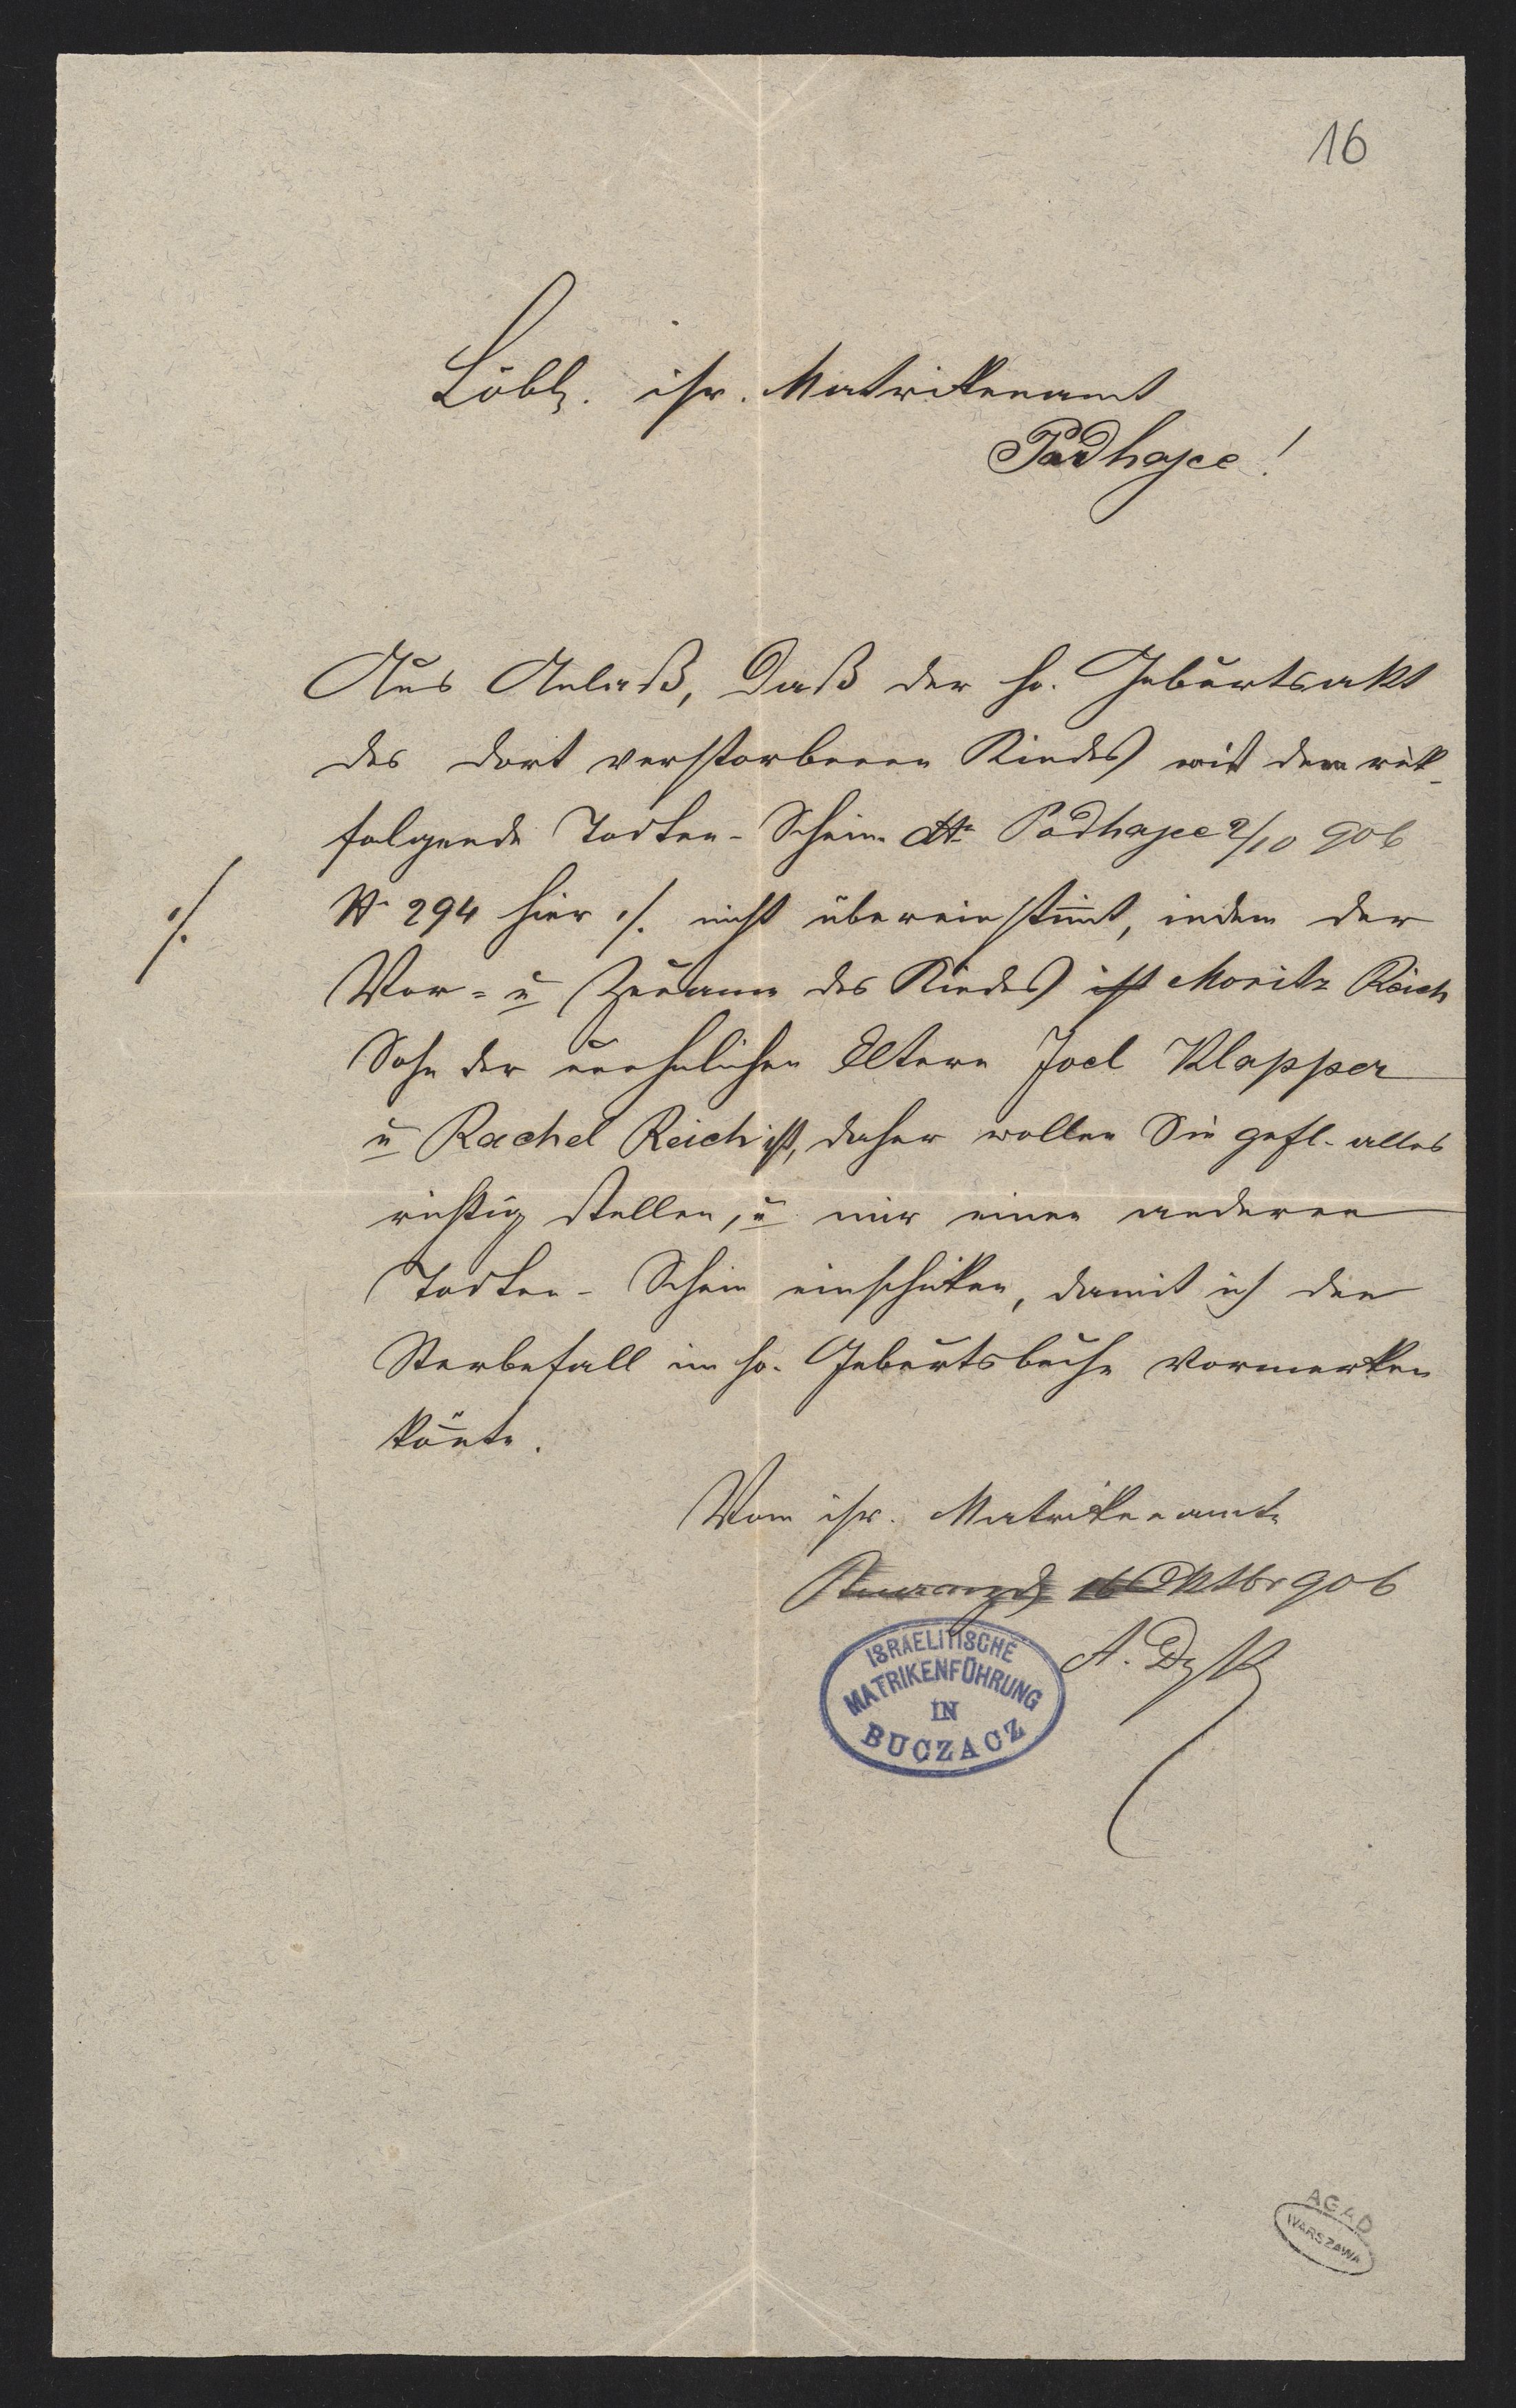 16
Löbl. isr. Matrikenamt
Podhajce!
Aus Anlaß, daß der hr. Geburtsakt
des dort verstorbenen Kindes mit dem rük-
folgende Todten-Schein dto Podhajce 2/10 906
N 294 hier ·/. nicht übereinstim̄t, indem der
·/.
Vor= u Zuname des Kindes ist Moritz Reich
Sohn der unehelichen Eltern Joel Klapper
u Rachel Reich ist, daher wollen Sie gefl. alles
richtig stellen, u mir einen anderen
Todten- Schein einschiken, damit ich den
Sterbefall im hr. Geburtsbuche vormerken
kön̄te.
Vom isr. Matrikenamte
16 Oktbr 906
ISRAELITISCHE
MATRIKENFÜHRUNG
IN
BUCZACZ
A. Dyk
AGAD
WARSZAWA